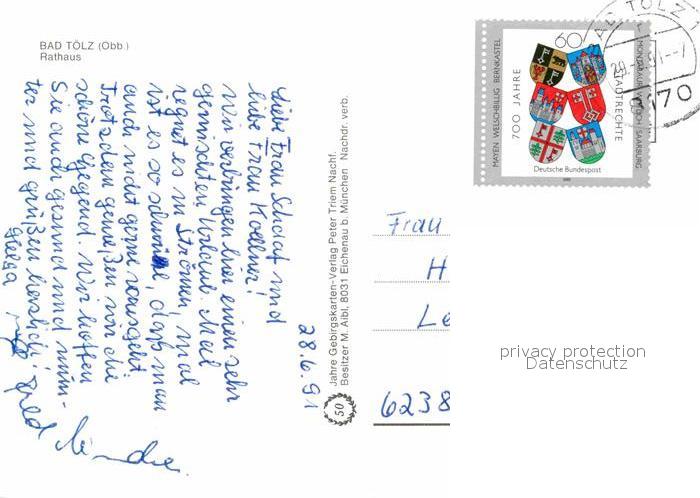 BAD TÖLZ (Obb.)
Rathaus
28.6.91
Liebe Frau Schaaf und
liebe Frau Koellner!
Wir verbringen hier einen sehr
gemischten Urlaub. Mal
regnet es in Strömen, mal
ist es so schwüle, daß man
auch nicht gerne rausgeht.
Trotzdem genießen wir die
schöne Gegend. Wir hoffen
Sie auch gesund und mun-
ter und grüßen herzlich!
Helga
Fred
Jahre Gebirgskarten-Verlag Peter Triem Nachf.
Besitzer M. Aibl, 8031 Eichenau b. München Nachdr. verb.
50
60
700 JAHRE
STADTRECHTE
MAYEN WELSCHBILLIG BERNKASTEL
MONTABAUR WITTLICH SAARBURG
Deutsche Bundespost
BAD TÖLZ 1
8170
Frau
H
Le
6238
privacy protection
Datenschutz